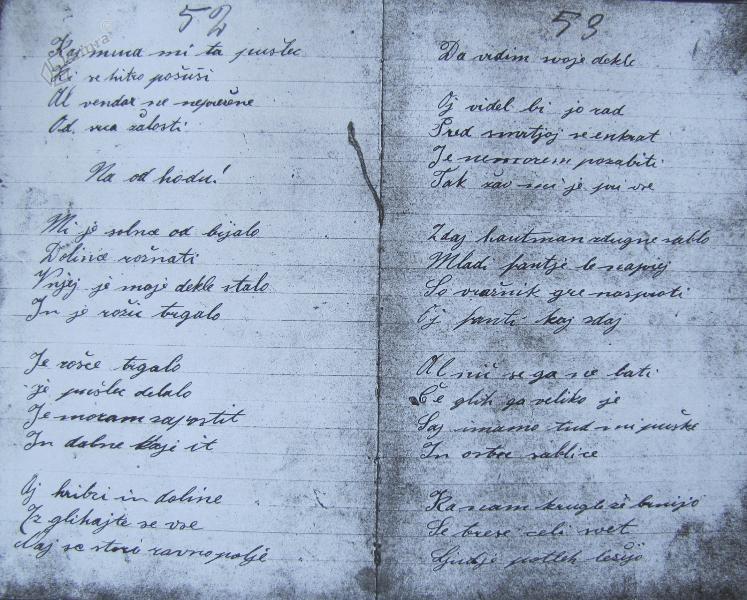 52
Kaj mena mi ta pušlc
Ki se hitro pošuši
Al vendar ne
Od srca žalosti
Na od hodu!
Mi je solnce od bijalo
Dolince rožnati
V njej je moje dekle stalo
In je rožce trgalo
Je rošce trgalo
je pušlec delalo
Je moram zapostit
In dalne kraje it
Oj hribzi in doline
Iz glihajte se vse
Naj se stori ravno polje
53
Da vidim svoje dekle
Oj videl bi jo rad
Pred smrtjoj se enkrat
Je nemorem pozabiti
Tak žav mi je pri vse
Zdaj hautman zdugne sablo
Mladi fantje le naprej
So vražnik gre nasproti
Oj fanti kaj zdaj
Al nič se ga ne bati
Če glih ga veliko je
Saj imamo tud mi puške
In ostre sablice
Ka nam krugle že brnijo
Se trese celi svet
Ljudje potleh ležijo